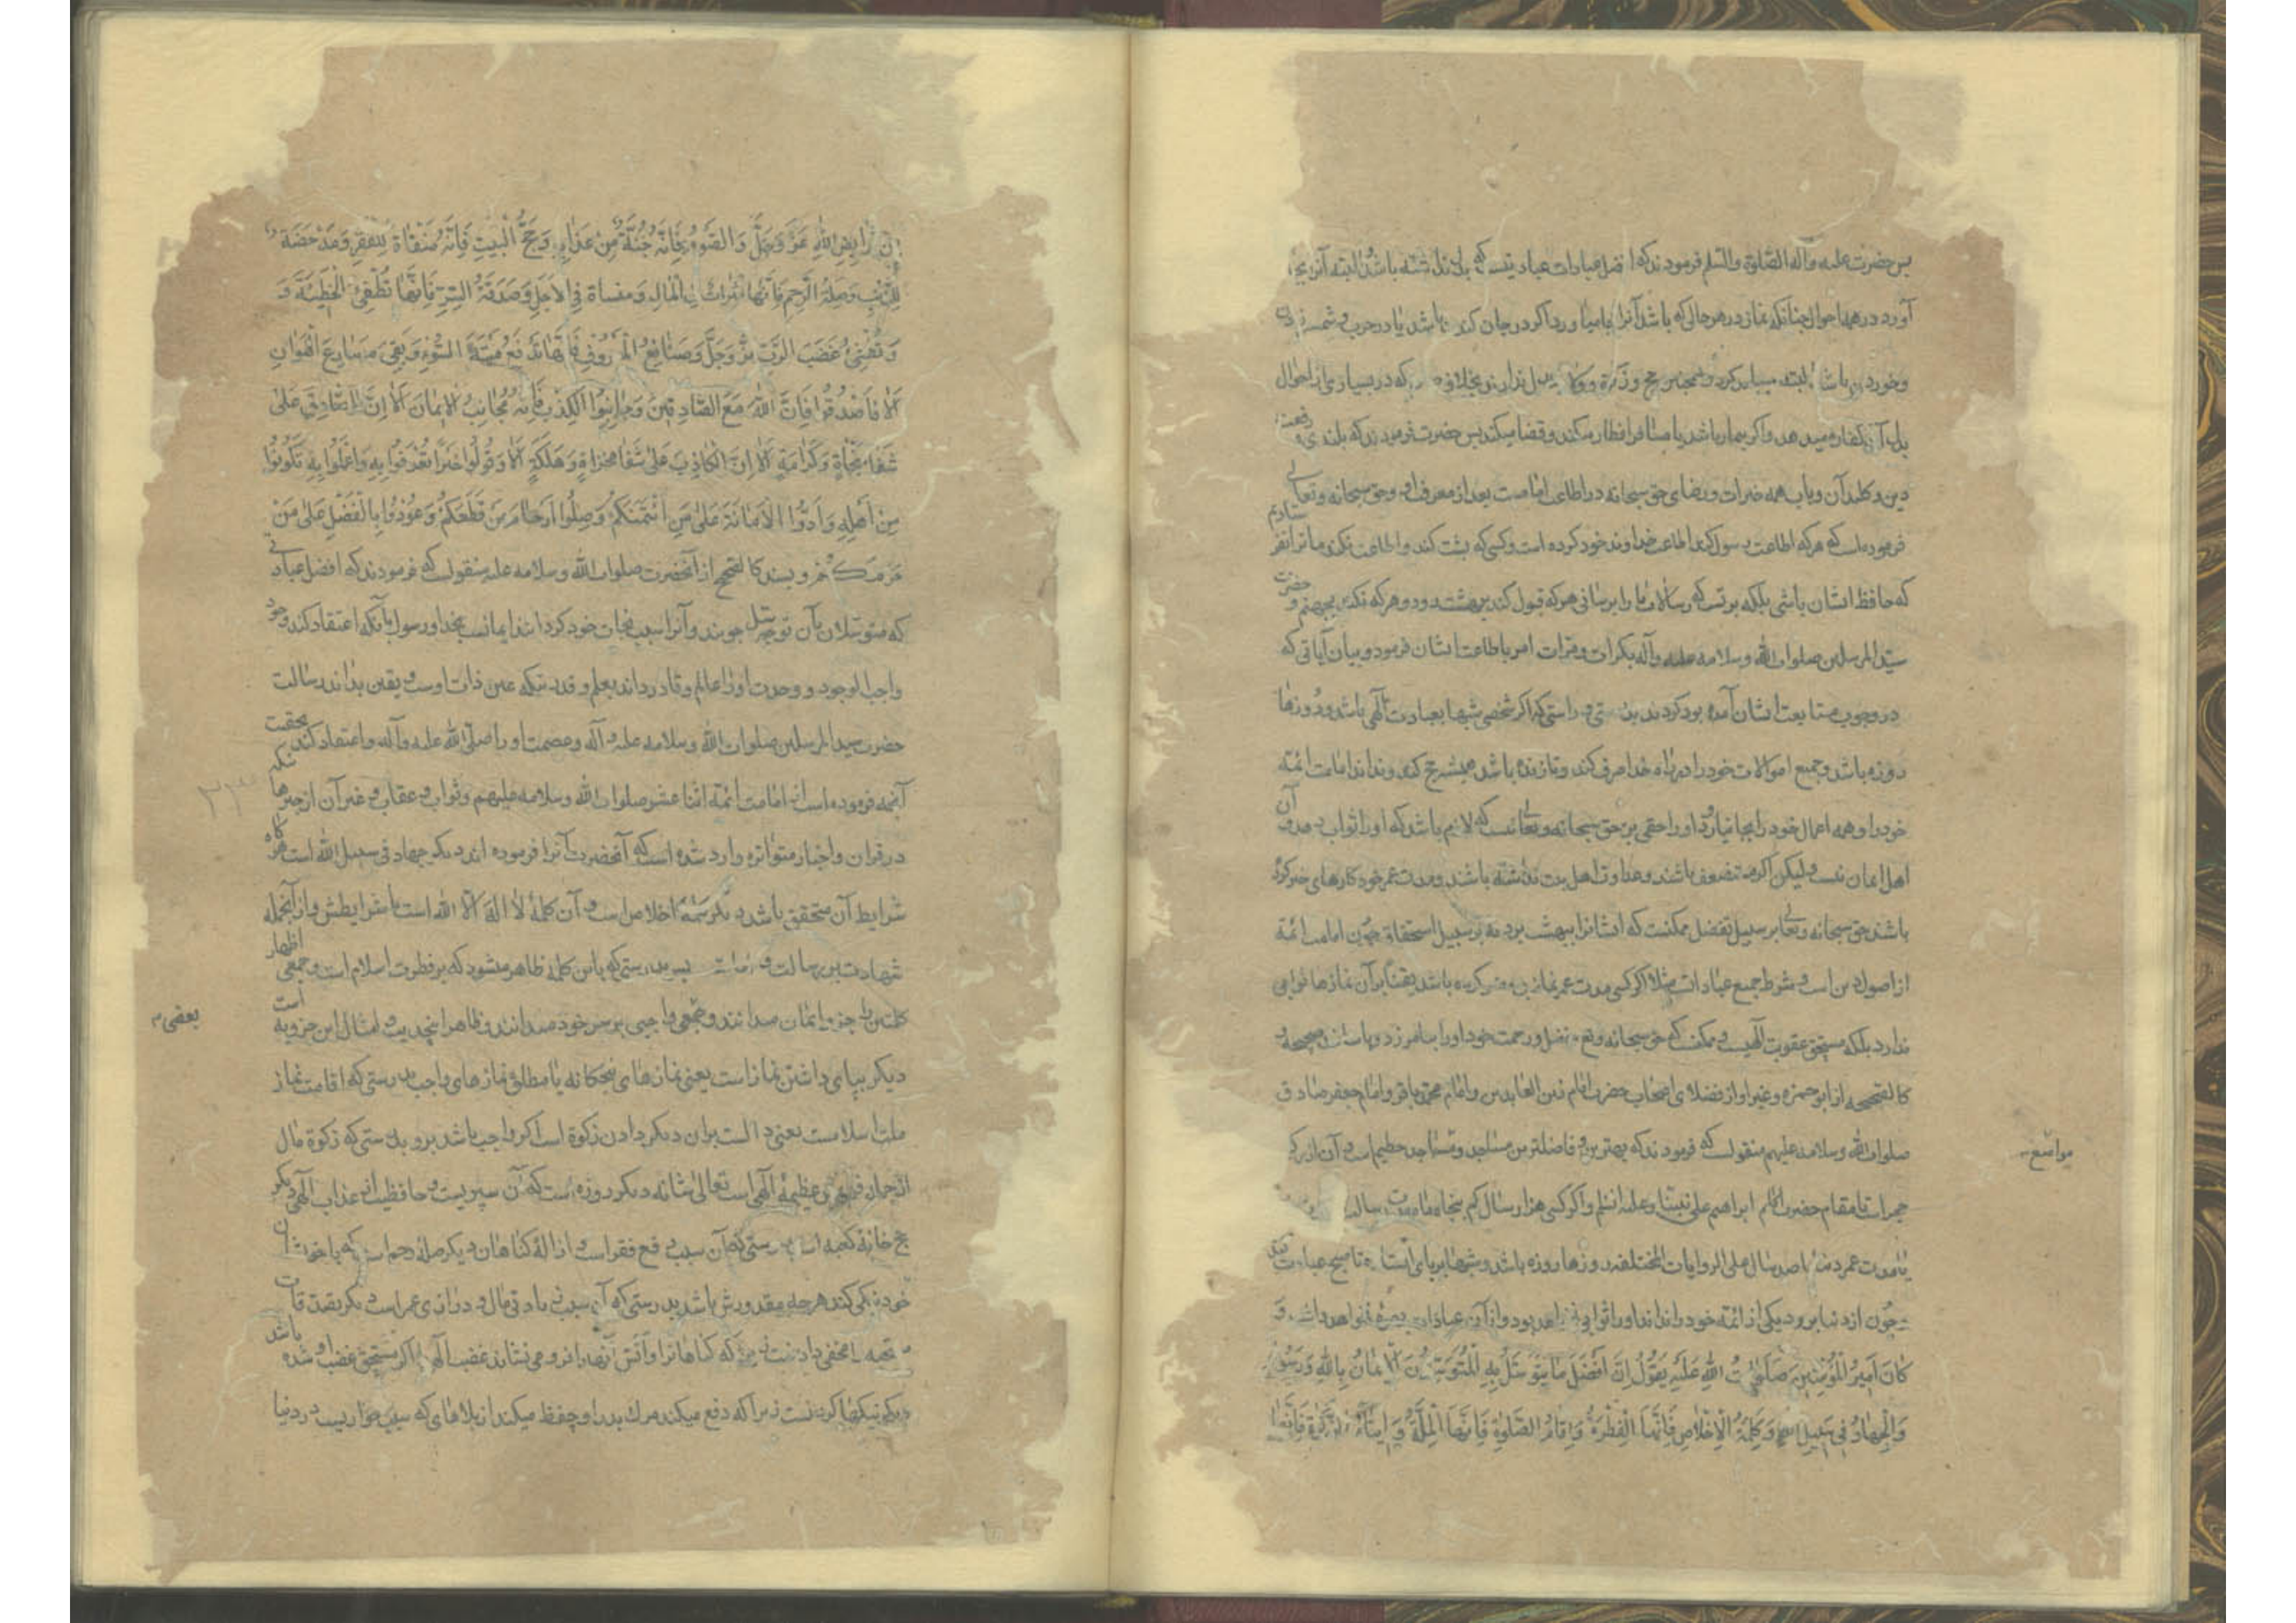 پس حضرت علیه وآله الصّلوة والسّلم فرمودند که افضل عبادات عبادتیست که بدل نداشته باشد البته آن بجا
آورد در همه احوال چنانکه نماز در هر حالی که باشد آنرا با میاورد اگر در جان کندن باشد یا در حرب و شمشیر زدن
وخوردن باشد البته میباید کرد و همچنین حج وزکوة وولایت بدل ندارند بخلاف که در بسیاری از احوال
بدل آن کفاره میدهد واکر بیمار باشد یا مسافر افطار میکند وقضا میکند پس حضرت فرمودند که بلندی رفعت
دین وکلید آن وباب همه خیرات ورضای حق سبحانه در اطاعت امامست بعد از معرفت او وحق سبحانه وتعالی
فرموده است که هر که اطاعت رسول کند اطاعت خداوند خود کرده است وکسی که پشت کند واطاعت نکند ما ترا نفرستادیم
که حافظ ایشان باشی بلکه بر تست که رسالات ما را برسانی هر که قبول کند ببهشت رود وهر که نکند بجهنم و حضرت
سیّد المرسلین صلوات الله وسلامه علیه وآله بکرات ومرات امر باطاعت ایشان فرمود وبیان آیاتی که
در وجوب متابعت ایشان آمده بود کردند بدرستی وراستی که اکر شخصی شبها بعبادت الهی باشد وروزها
روزه باشد وجمیع اموالات خود را در راه خدا صرف کند وتا زنده باشد همیشه حج کند ونداند امامت ائمّه
خود را وهمه اعمال خود را بجا نیاورد او را حقی بر حق سبحانه وتعالی نیست که لازم باشد که او را ثواب دهد وآن از
اهل ایمان نیست ولیکن اکر مستضعف باشند وعداوت اهل بیت نداشته باشند ومدت عمر خود کارهای خیر کرده
باشند حق سبحانه وتعالی بر سبیل تفضل ممکنست که ایشانرا ببهشت برد نه بر سبیل استحقاق چون امامت ائمّه
از اصول دین است وشرط جمیع عبادات مثلا اکر کسی مدت عمر نماز بی وضو کرده باشد یقینا بر آن نمازها ثوابی
ندارد بلکه مستحق عقوبت الهیست وممکنست که حق سبحانه وتع بفضل ورحمت خود او را بیامرزد وباسانید صحیحه و
کالصحیحه از ابو حمزه وغیر او از فضلای اصحاب حضرت امام زین العابدین وامام محمد باقر وامام جعفر صادق
صلوات الله وسلامه علیهم منقولست که فرمودند که بهترین وفاضلترین مساجد ومساجد حطیم است وآن از رکن
مواضع
حجر است تا مقام حضرت ابراهیم علی نبینا وعلیه السّلم واکر کسی هزار سال کم پنجاه سال
یا مدت عمر دنیا صد سال علی الروایات المختلفه روزها روزه باشد وشبها بر پای ایستاده تا صبح عبادت کند
چون از دنیا برود یکی از ائمّه خود را نداند او را ثوابی نخواهد بود واز آن عبادات بهره نخواهد داشت و
كَانَ اَمِيرُ الْمُؤْمِنِينَ صَلَوَاتُ اللّٰهِ عَلَيْهِ يَقُولُ اِنَّ اَفْضَلَ مَا يَتَوَسَّلُ بِهِ الْمُتَوَسِّلُونَ الْاِيمَانُ بِاللّٰهِ وَرَسُولِهِ
وَالْجِهَادُ فِي سَبِيلِ اللّٰهِ وَكَلِمَةُ الْاِخْلَاصِ فَاِنَّهَا الْفِطْرَةُ وَاِقَامُ الصَّلٰوةِ فَاِنَّهَا الْمِلَّةُ وَاِيتَاءُ الزَّكٰوةِ فَاِنَّهَا
مِنْ فَرَايِضِ اللّٰهِ عَزَّ وَجَلَّ وَالصَّوْمُ فَاِنَّهُ جُنَّةٌ مِنْ عَذَابِهِ وَحَجُّ الْبَيْتِ فَاِنَّهُ مَنْفَاةٌ لِلْفَقْرِ وَمَدْحَضَةٌ
لِلذَّنْبِ وَصِلَةُ الرَّحِمِ فَاِنَّهَا مَثْرَاةٌ فِي الْمَالِ وَمَنْسَاةٌ فِي الْاَجَلِ وَصَدَقَةُ السِّرِّ فَاِنَّهَا تُطْفِئُ الْخَطِيئَةَ وَ
وَتُطْفِئُ غَضَبَ الرَّبِّ عَزَّ وَجَلَّ وَصَنَايِعُ الْمَعْرُوفِ فَاِنَّهَا تَدْفَعُ مِيتَةَ السُّوءِ وَتَقِي مَصَارِعَ الْهَوَانِ
اَلَا فَاصْدُقُوا فَاِنَّ اللّٰهَ مَعَ الصَّادِقِينَ وَجَانِبُوا الْكِذْبَ فَاِنَّهُ مُجَانِبُ الْاِيمَانِ اَلَا اِنَّ الصَّادِقَ عَلٰى
شَفَا مَنْجَاةٍ وَكَرَامَةٍ اَلَا اِنَّ الْكَاذِبَ عَلٰى شَفَا مَخْزَاةٍ وَهَلَكَةٍ اَلَا وَقُولُوا خَيْرًا تُعْرَفُوا بِهِ وَاعْمَلُوا بِهِ تَكُونُوا
مِنْ اَهْلِهِ وَاَدُّوا الْاَمَانَةَ عَلٰى مَنِ ائْتَمَنَكُمْ وَصِلُوا اَرْحَامَ مَنْ قَطَعَكُمْ وَعُودُوا بِالْفَضْلِ عَلٰى مَنْ
حَرَمَكُمْ وبسند کالصحیح از آنحضرت صلوات الله وسلامه علیه منقولست که فرمودند که افضل عباداتی
که متوسّلان بآن توسّل جویند وآنرا سبب نجات خود کردانند ایمانست بخدا ورسول بآنکه اعتقاد کند وجود
واجب الوجود ووحدت او را عالم وقادر داند بعلم وقدرتیکه عین ذات اوست ویقین بداند رسالت
حضرت سید المرسلین صلوات الله وسلامه علیه وآله وعصمت او را صلّی الله علیه وآله واعتقاد کند بحقیت
آنچه فرموده است از امامت ائمّه اثنا عشر صلوات الله وسلامه علیهم وثواب وعقاب وغیر آن از چیزها
در قران واخبار متواتره وارد شده است که آنحضرت آنرا فرموده اند دیکر جهاد فی سبیل الله است هرکاه
شرایط آن متحقق باشد دیکر کلمه اخلاص است وآن کلمهٔ لا اله الّا الله است با شرایطش واز آنجمله
شهادت برسالت وامامت بدرستی که باین کلمه ظاهر میشود که بر فطرت اسلام است وجمعی اظهار
کلمتین را جزو ایمان میدانند وجمعی واجبی بر سر خود میدانند وظاهر اینحدیث وامثال این جزویه است
بعضی
دیکر بپای داشتن نماز است یعنی نمازهای پنجکانه یا مطلق نمازهای واجب بدرستی که اقامت نماز
ملت اسلامست یعنی دالست بر آن دیکر دادن زکوة است اکر واجب باشد برو بدرستی که زکوة مال
از جمله فریضهٔ عظیمهٔ الهی است تعالی شانه دیکر روزه است که آن سپریست وحافظیست از عذاب الهی دیکر
حج خانهٔ کعبه است بدرستی که آن سبب دفع فقر است وازالهٔ کناهان دیکر صلهٔ رحم است که با خویشان
خود نیکی کند هر چه مقدورش باشد بدرستی که آن سبب زیادتی مال ودرازی عمر است دیکر تصدقات
مخفی دادنست که کناهانرا وآتش آنها را فرو می نشاند غضب الهی را اکر مستحق غضب او شده باشد
دیکر نیکیها کردنست زیرا که دفع میکند مرک بد را وحفظ میکند از بلاهای که سبب خواریست در دنیا